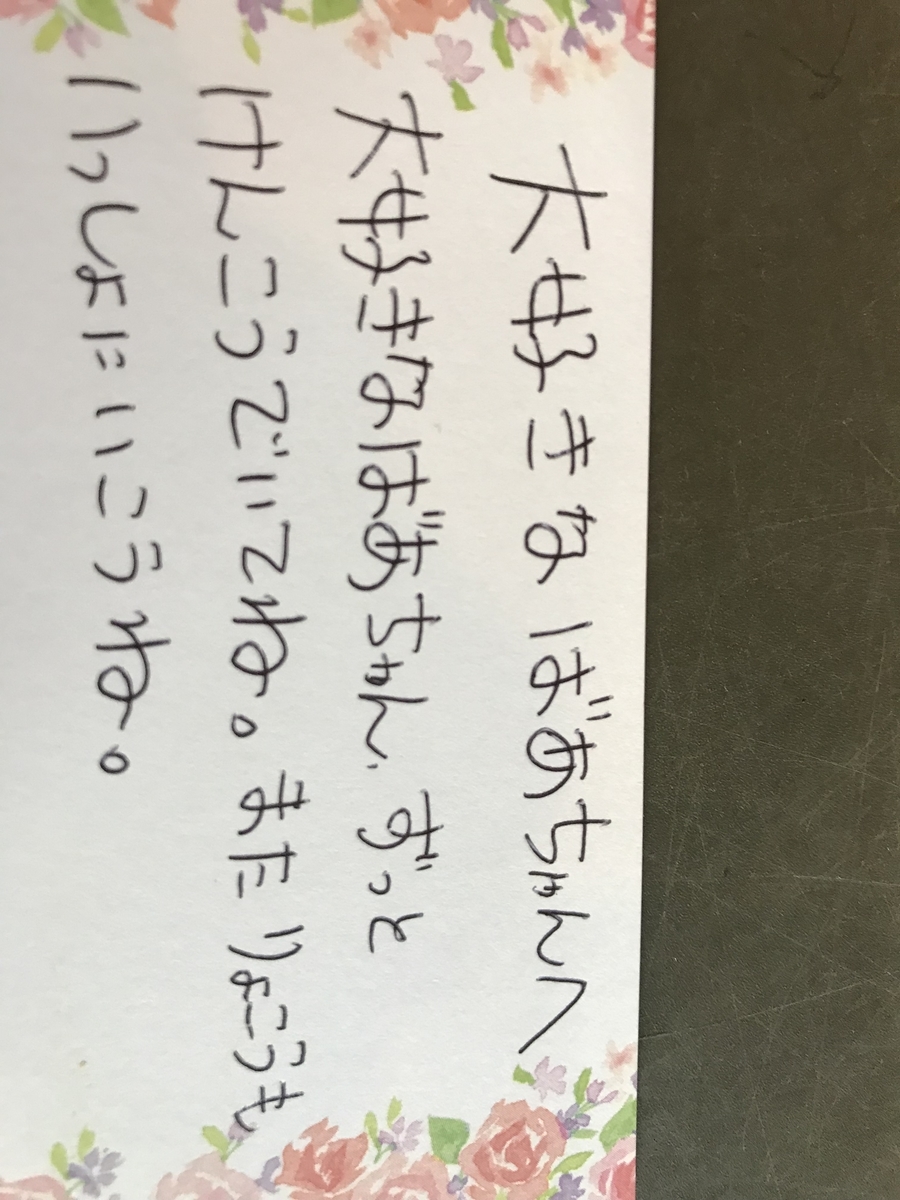 大好きなばあちゃんへ
大好きなばあちゃん、ずっと
けんこうでいてね。またりょこうも
いっしょにいこうね。